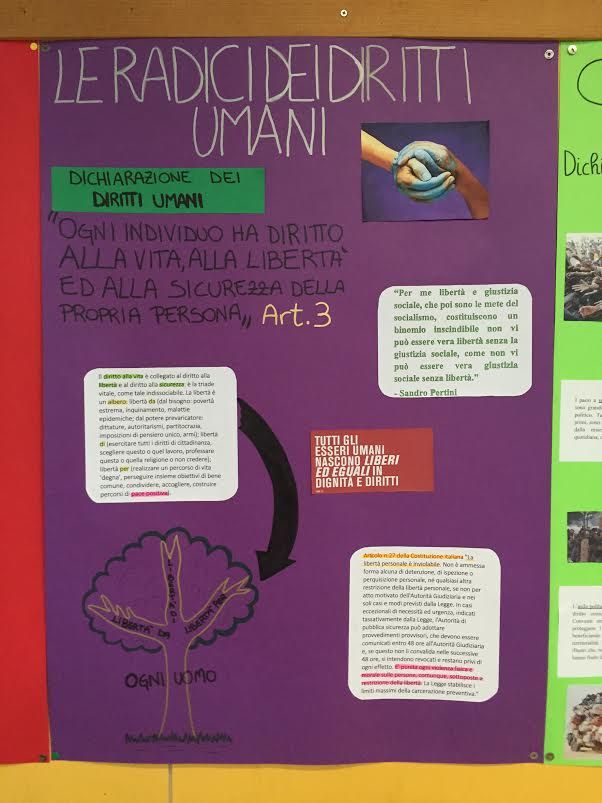 LE RADICI DEI DIRITTI
UMANI
DICHIARAZIONE DEI
DIRITTI UMANI
"OGNI INDIVIDUO HA DIRITTO
ALLA VITA, ALLA LIBERTA'
ED ALLA SICUREZZA DELLA
PROPRIA PERSONA,, Art.3
"Per me libertà e giustizia
sociale, che poi sono le mete del
socialismo, costituiscono un
binomio inscindibile non vi
può essere vera libertà senza la
giustizia sociale, come non vi
può essere vera giustizia
sociale senza libertà."
- Sandro Pertini
Il diritto alla vita è collegato al diritto alla
libertà e al diritto alla sicurezza: è la triade
vitale, come tale indissociabile. La libertà è
un albero: libertà da (dal bisogno: povertà
estrema, inquinamento, malattie
epidemiche; dal potere prevaricatore:
dittature, autoritarismi, partitocrazia,
imposizioni di pensiero unico, armi); libertà
di (esercitare tutti i diritti di cittadinanza,
scegliere questo o quel lavoro, professare
questa o quella religione o non credere),
libertà per (realizzare un percorso di vita
'degna', perseguire insieme obiettivi di bene
comune, condividere, accogliere, costruire
percorsi di pace positiva).
TUTTI GLI
ESSERI UMANI
NASCONO LIBERI
ED EGUALI IN
DIGNITÀ E DIRITTI
Articolo n.27 della Costituzione italiana "La
libertà personale è inviolabile. Non è ammessa
forma alcuna di detenzione, di ispezione o
perquisizione personale, né qualsiasi altra
restrizione della libertà personale, se non per
atto motivato dell'Autorità Giudiziaria e nei
soli casi e modi previsti dalla Legge. In casi
eccezionali di necessità ed urgenza, indicati
tassativamente dalla Legge, l'Autorità di
pubblica sicurezza può adottare
provvedimenti provvisori, che devono essere
comunicati entro 48 ore all'Autorità Giudiziaria
e, se questo non li convalida nelle successive
48 ore, si intendono revocati e restano privi di
ogni effetto. E' punita ogni violenza fisica e
morale sulle persone, comunque, sottoposte a
restrizione della libertà. La Legge stabilisce i
limiti massimi della carcerazione preventiva."
LIBERTÀ DI
LIBERTA' DA
LIBERTÀ PER
OGNI UOMO
Dichi